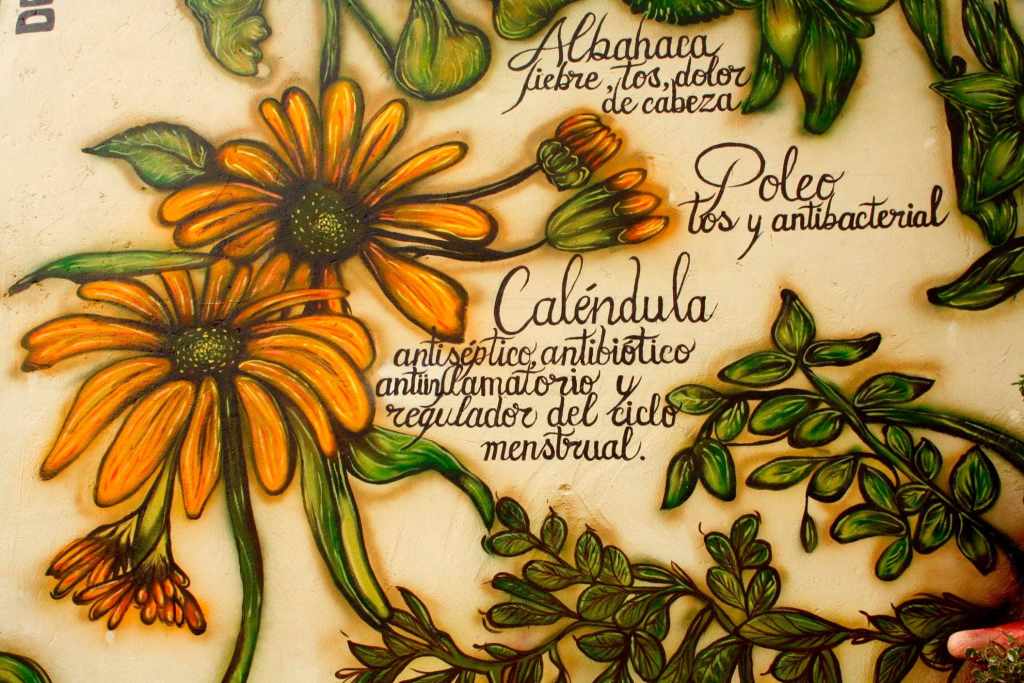 DE
Albahaca
fiebre, tos, dolor
de cabeza
Poleo
tos y antibacterial
Caléndula
antiséptico, antibiótico
antiinflamatorio y
regulador del ciclo
menstrual.